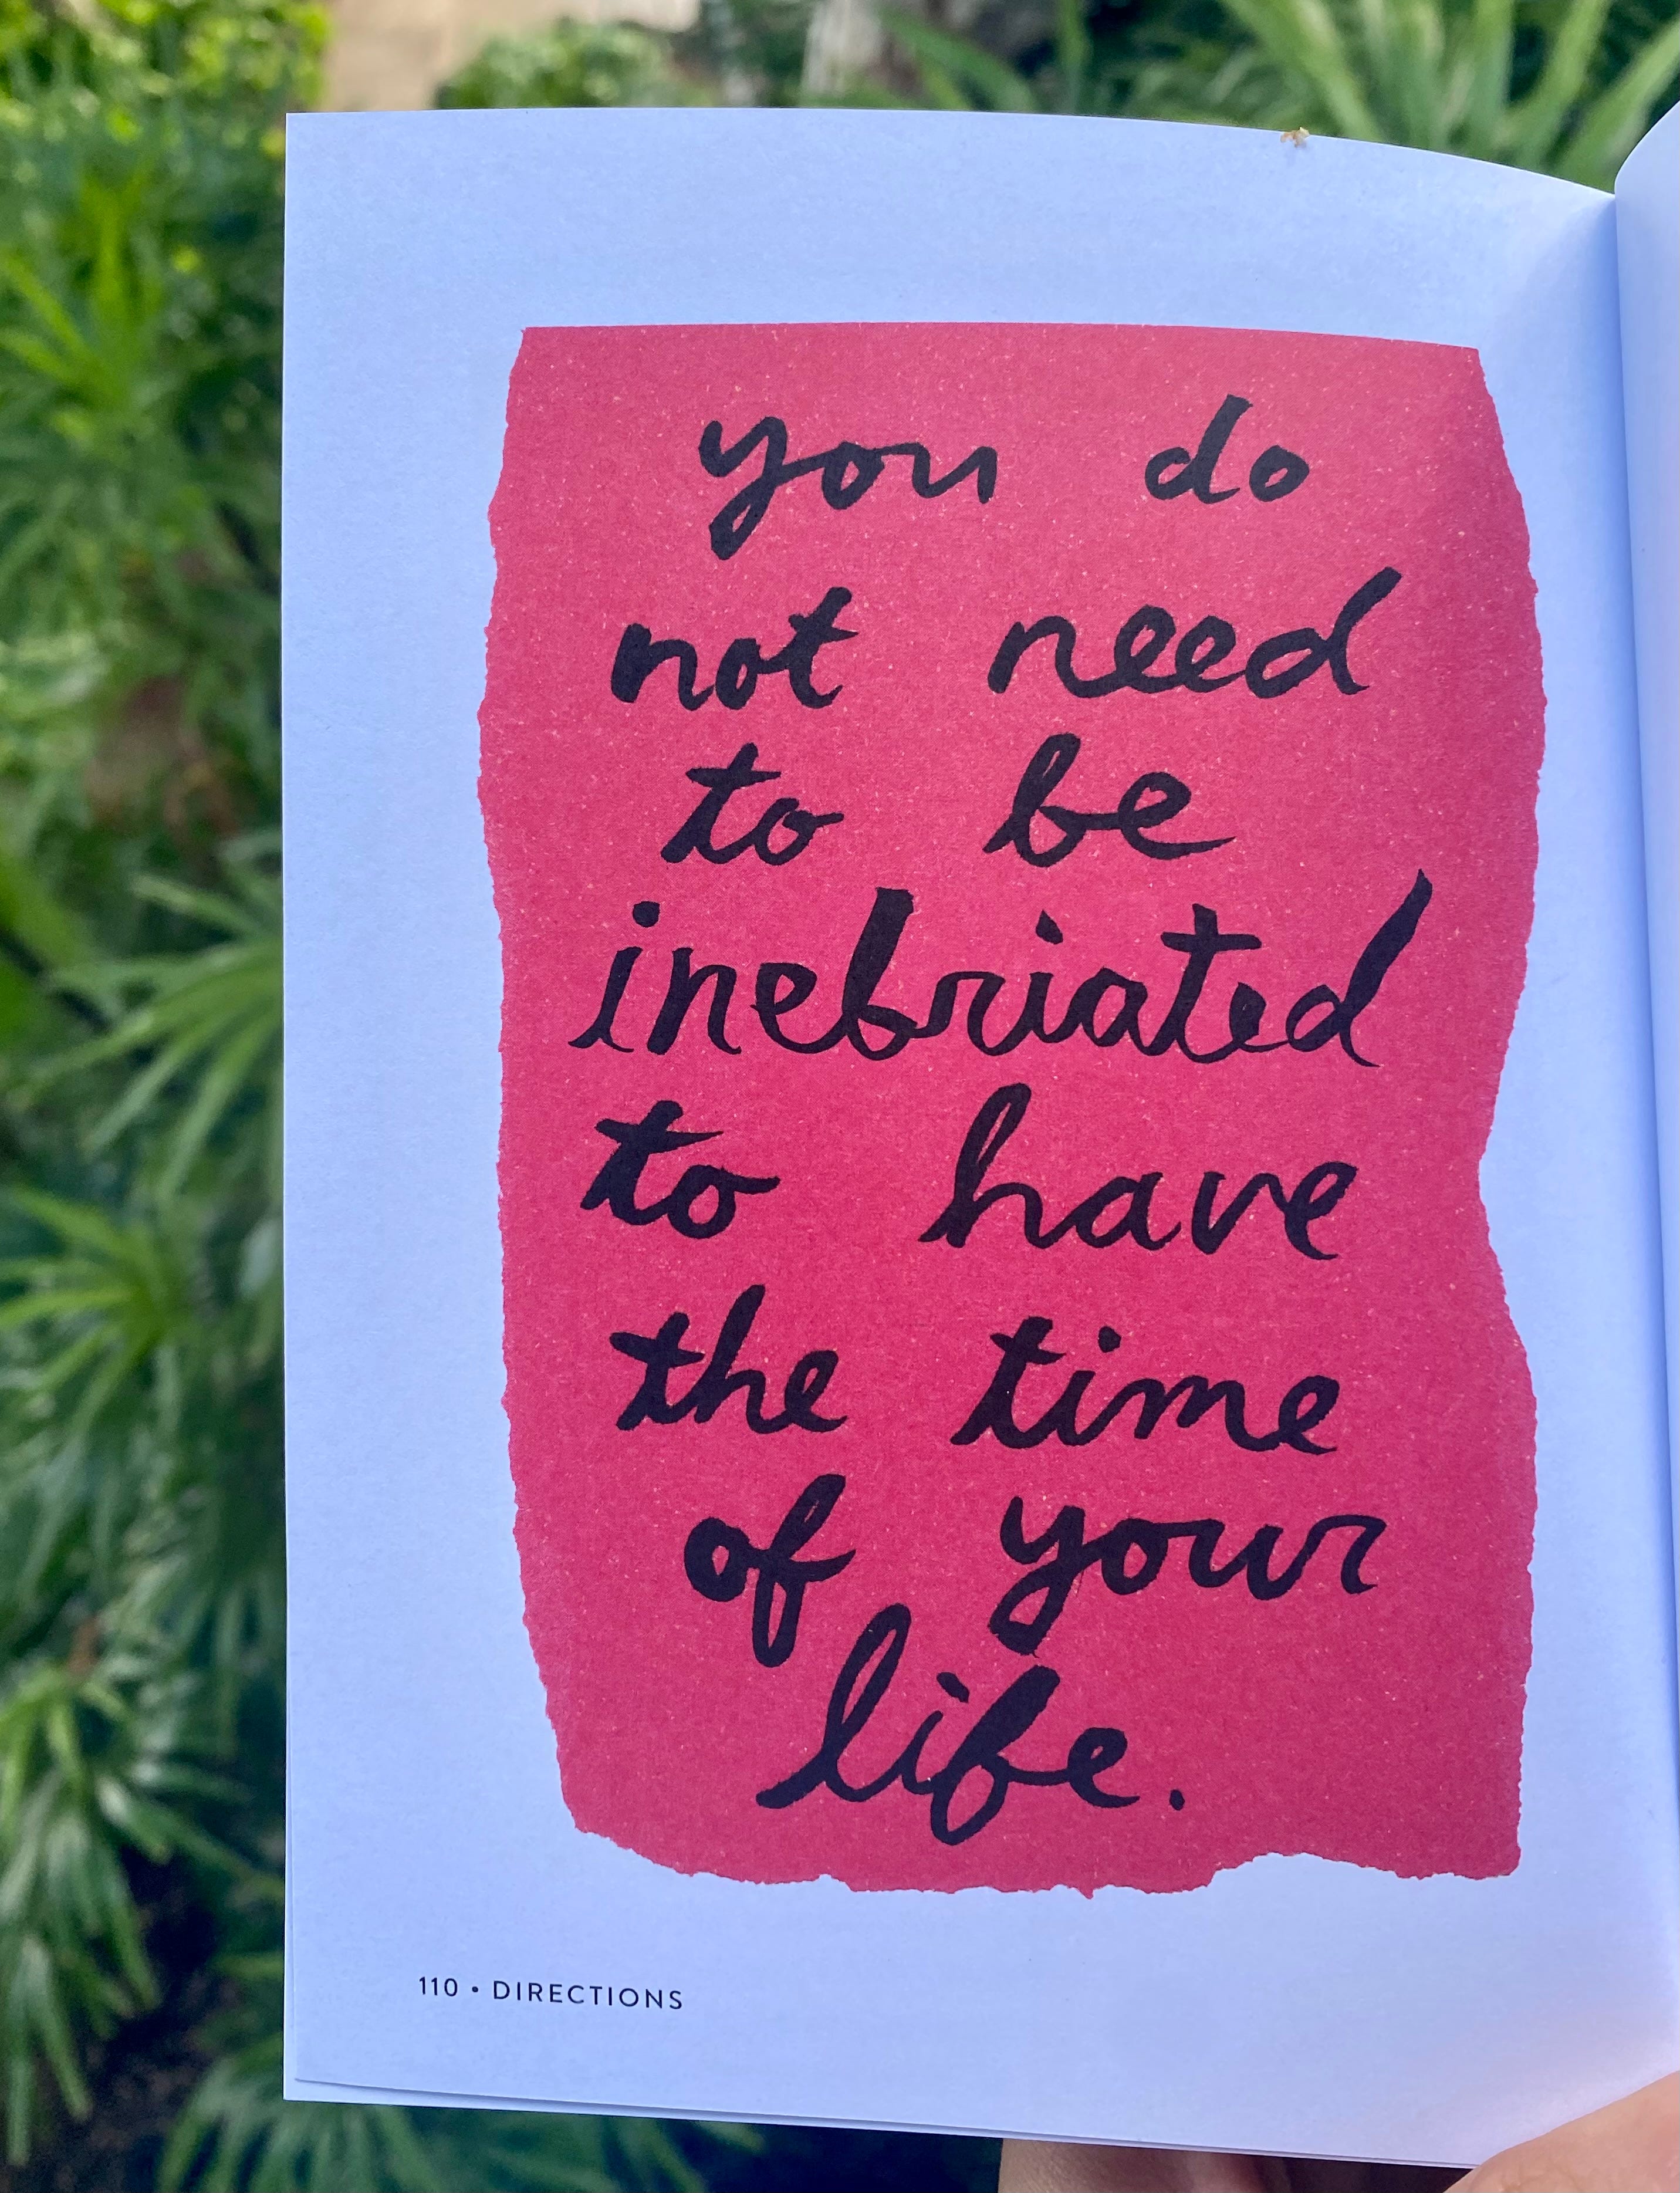 you do
not need
to be
inebriated
to have
the time
of your
life.
110 • DIRECTIONS